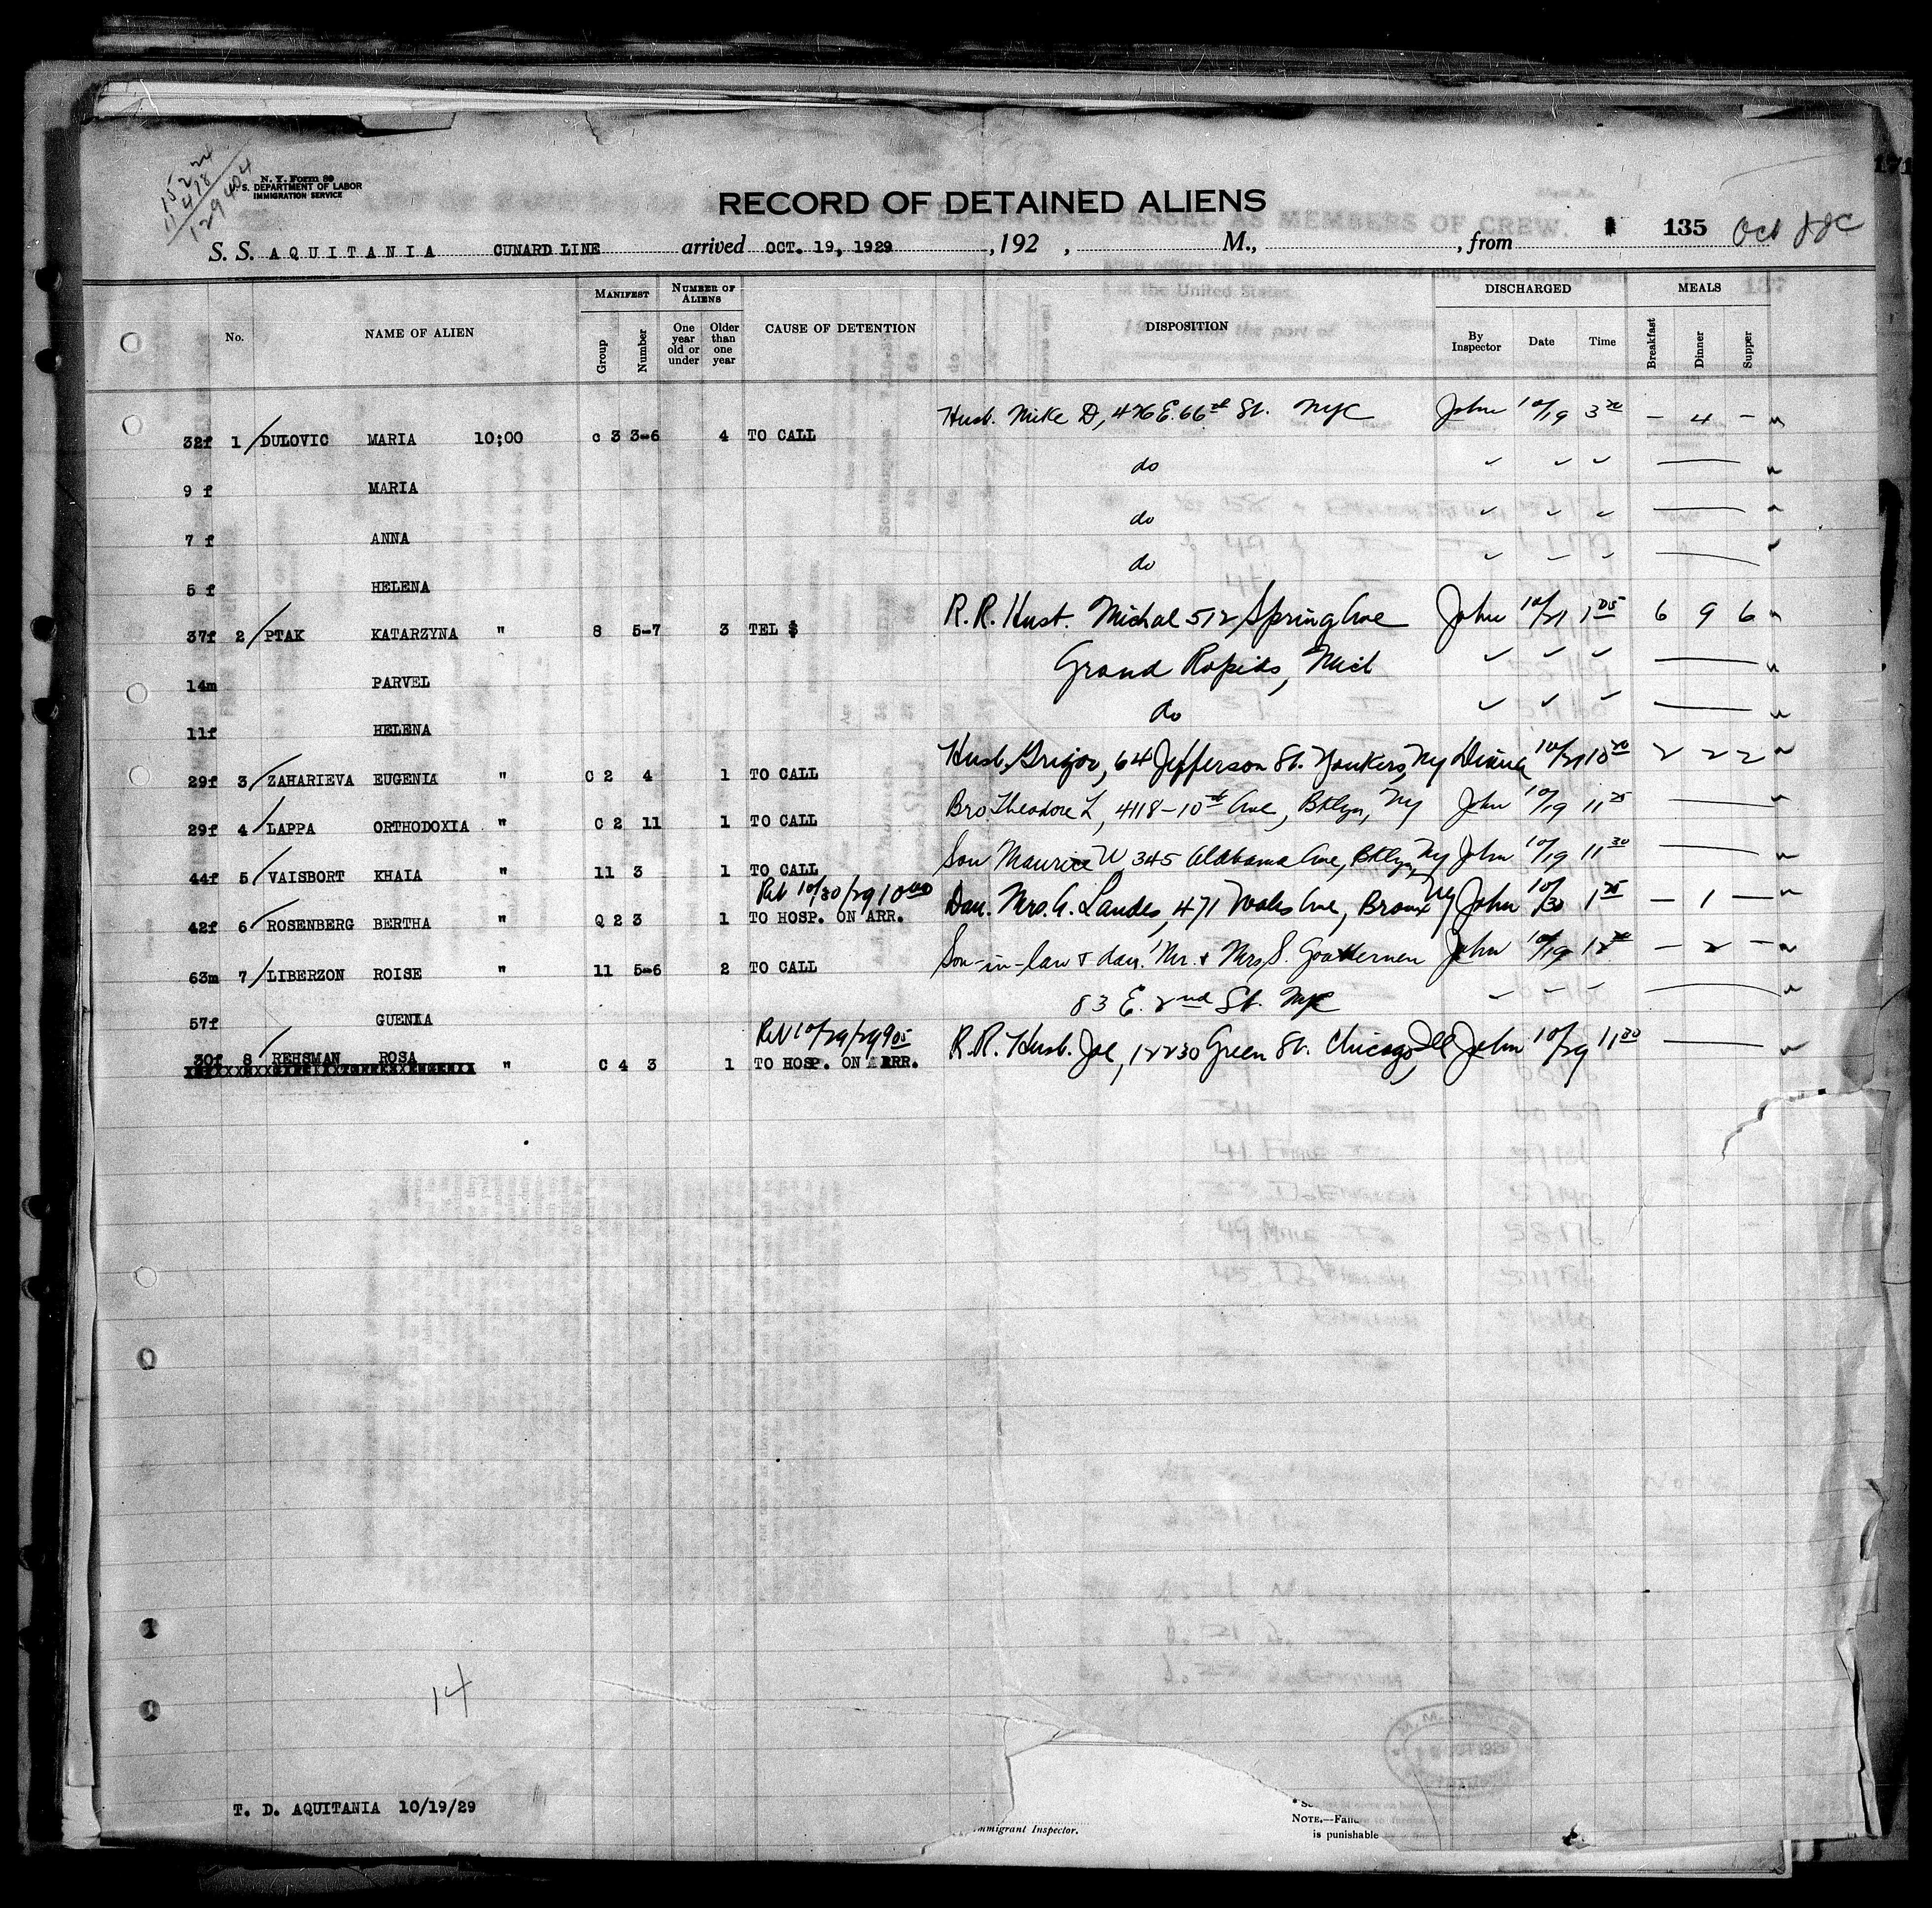 171
15 2 24
11 4 18
129 404
N. Y. Form 89
S. DEPARTMENT OF LABOR
IMMIGRATION SERVICE
RECORD OF DETAINED ALIENS
135
S. S. AQUITANIA CUNARD LINE arrived OCT. 19, 1929 , 192 , M., , from
No. NAME OF ALIEN MANIFEST Group Number NUMBER OF ALIENS One year old or under Older than one year CAUSE OF DETENTION DISPOSITION DISCHARGED By Inspector Date Time MEALS Breakfast Dinner Supper
Husb. Mike D, 476 E. 66th St. NYC John 10/19 3 20 – 4 –
32f 1/ DULOVIC MARIA 10;00 c 3 3-6 4 TO CALL
do ✓ ✓ ✓
9 f MARIA
do ✓ ✓ ✓
7 f ANNA
do ✓ ✓ ✓
5 f HELENA
R.R. Husb. Michal 512 Spring Ave John 10/21 1 05 6 9 6
37f 2/ PTAK KATARZYNA " 8 5-7 3 TEL $
Grand Rapids, Mich ✓ ✓ ✓
14m PARVEL
do ✓ ✓ ✓
11f HELENA
Husb, Grigor, 64 Jefferson St. Yonkers, Ny 10/21 10 20 2 2 2
29f 3/ ZAHARIEVA EUGENIA " C 2 4 1 TO CALL
Bro Theodore L, 4118-10th Ave, Bklyn, Ny John 10/19 11 25
29f 4/ LAPPA ORTHODOXIA " C 2 11 1 TO CALL
Son Maurice W 345 Alabama Ave, Bklyn, Ny John 10/19 11 30
44f 5/ VAISBORT KHAIA " 11 3 1 TO CALL
Ret 10/30/29 10 00 Dau. Mrs. A. Landes, 471 Wales Ave, Bronx Ny John 10/30 1 25 – 1 –
42f 6/ ROSENBERG BERTHA " Q 2 3 1 TO HOSP. ON ARR.
Son-in-law & dau. Mr. & Mrs S. John 10/19 12 20 – 2 –
63m 7/ LIBERZON ROISE " 11 5-6 2 TO CALL
83 E. 2nd St. NYC ✓ – –
57f GUENIA
Ret 10/29/29 9 05 R.R. Husb. Joe, 12230 Green St. Chicago, Ill John 10/29 11 30
30f 8/ REHSMAN ROSA
" C 4 3 1 TO HOSP. ON ARR.
14
T. D. AQUITANIA 10/19/29
mmigrant Inspector.
NOTE.—Failu
is punishable